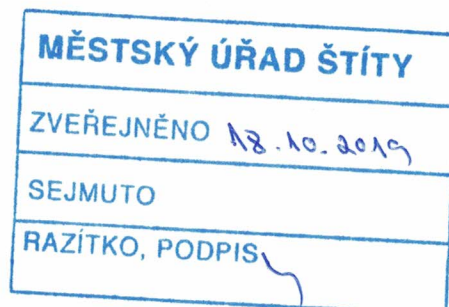 MĚSTSKÝ ÚŘAD ŠTÍTY
ZVEŘEJNĚNO 18.10.2019
SEJMUTO
RAZÍTKO, PODPIS